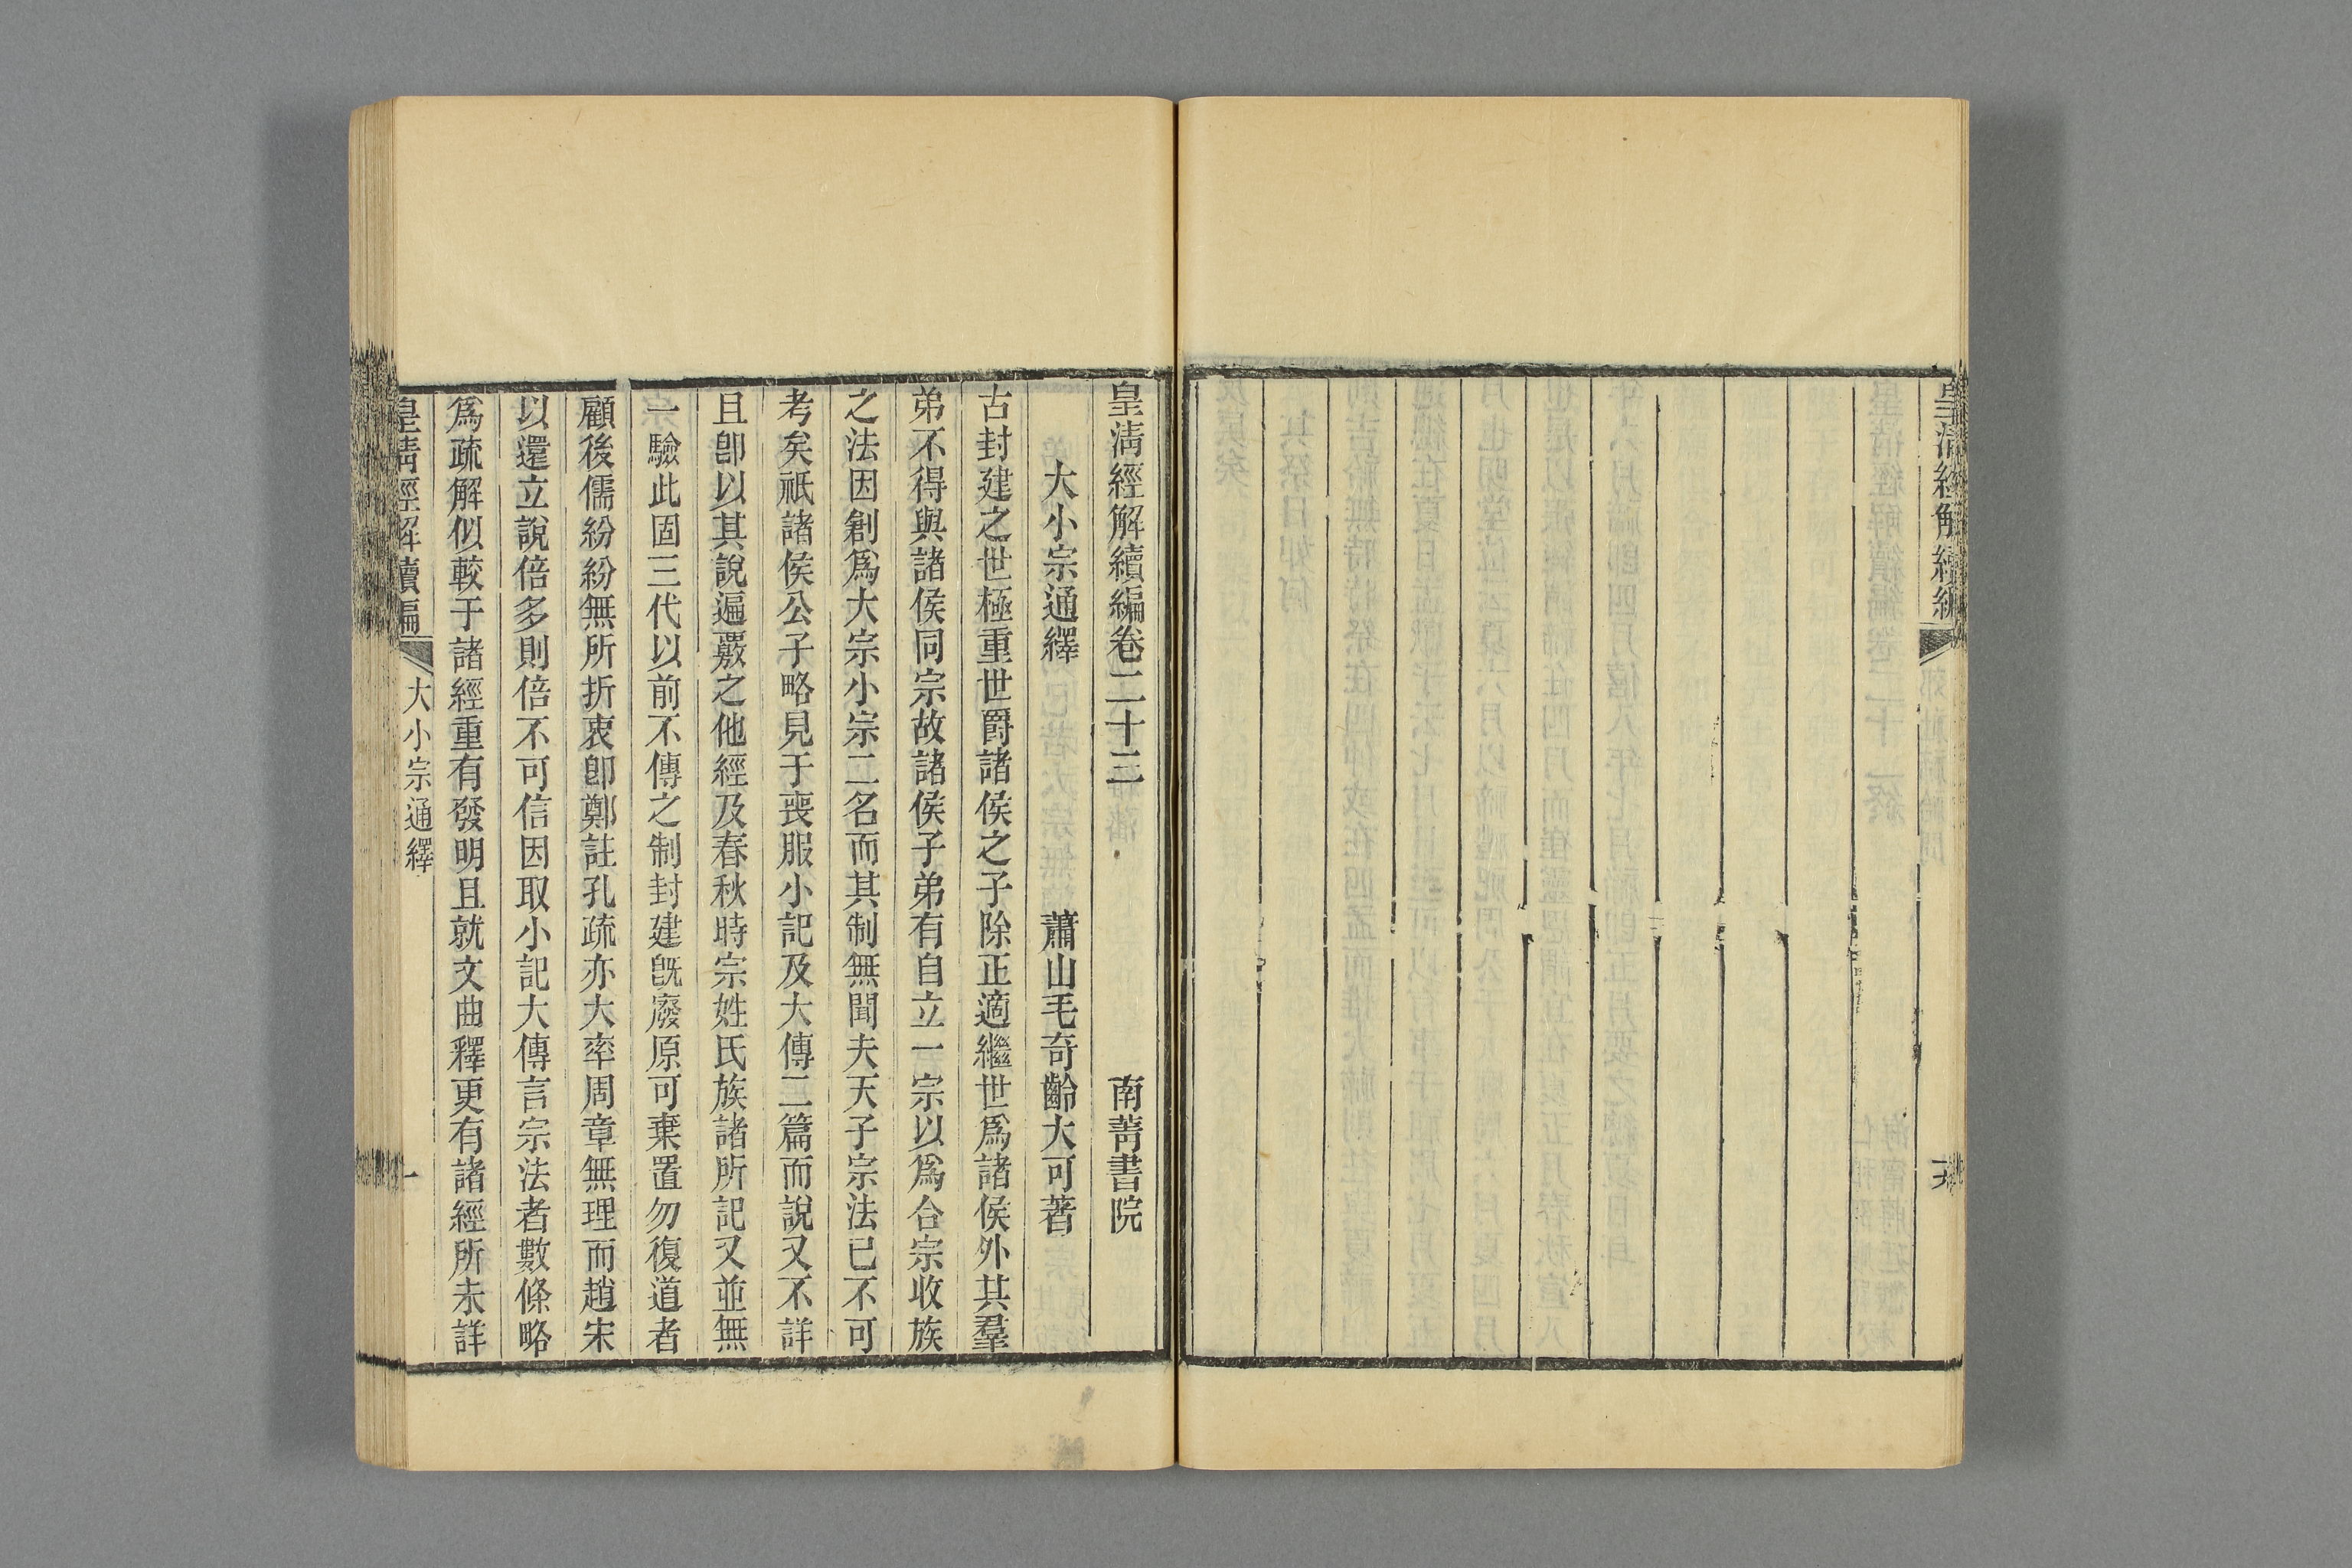 皇清經解續編
皇清經解續編卷二十三
南菁書院
大小宗通繹
蕭山毛奇齡大可著
古封建之世極重世爵諸侯之子除正適繼世爲諸侯外其羣
弟不得與諸侯同宗故諸侯子弟有自立一宗以爲合宗收族
之法因創爲大宗小宗二名而其制無聞夫天子宗法已不可
考矣祗諸侯公子略見于喪服小記及大傳二篇而說又不詳
且卽以其說遍覈之他經及春秋時宗姓氏族諸所記又並無
一驗此固三代以前不傳之制封建旣廢原可棄置勿復道者
顧後儒紛紛無所折衷卽鄭註孔疏亦大率周章無理而趙宋
以還立說倍多則倍不可信因取小記大傳言宗法者數條略
爲疏解似較于諸經重有發明且就文曲釋更有諸經所未詳
皇清經解續編
大小宗通繹
一